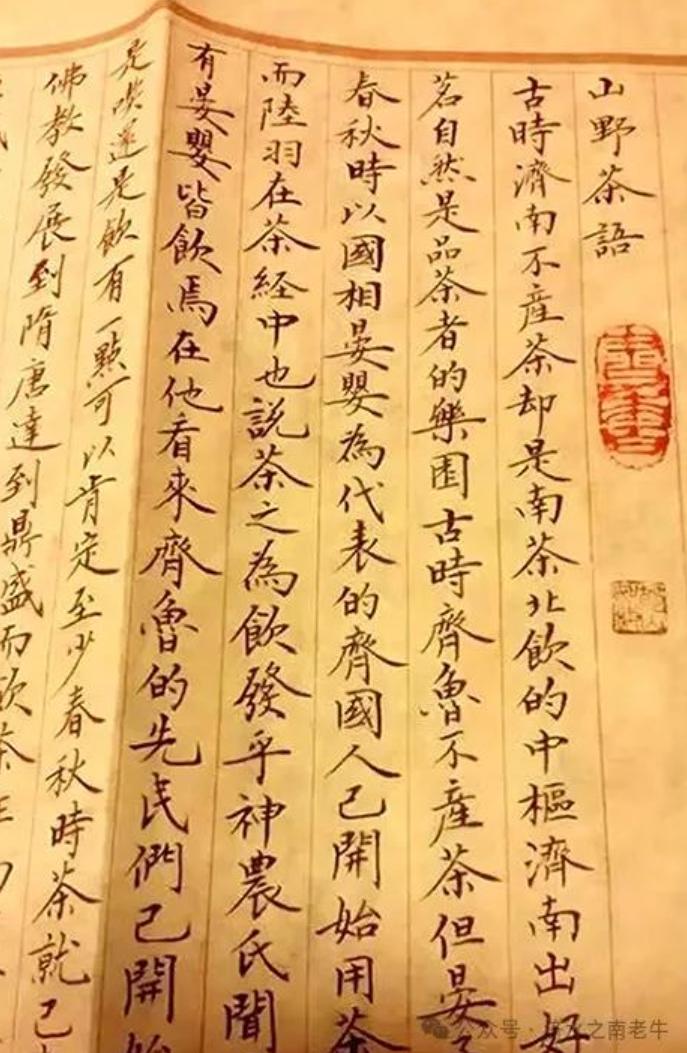 山野茶語
古時濟南不產茶却是南茶北飲的中樞濟南出好
茗自然是品茶者的樂園古時齊魯不產茶但晏子
春秋時以國相晏嬰為代表的齊國人已開始用茶
而陸羽在茶経中也說茶之為飲發乎神農氏聞
有晏嬰皆飲焉在他看來齊魯的先民們已開始
是啖還是飲有一點可以肯定至少春秋時茶就已
佛教發展到隋唐達到鼎盛而飲茶
公众号·之南老牛